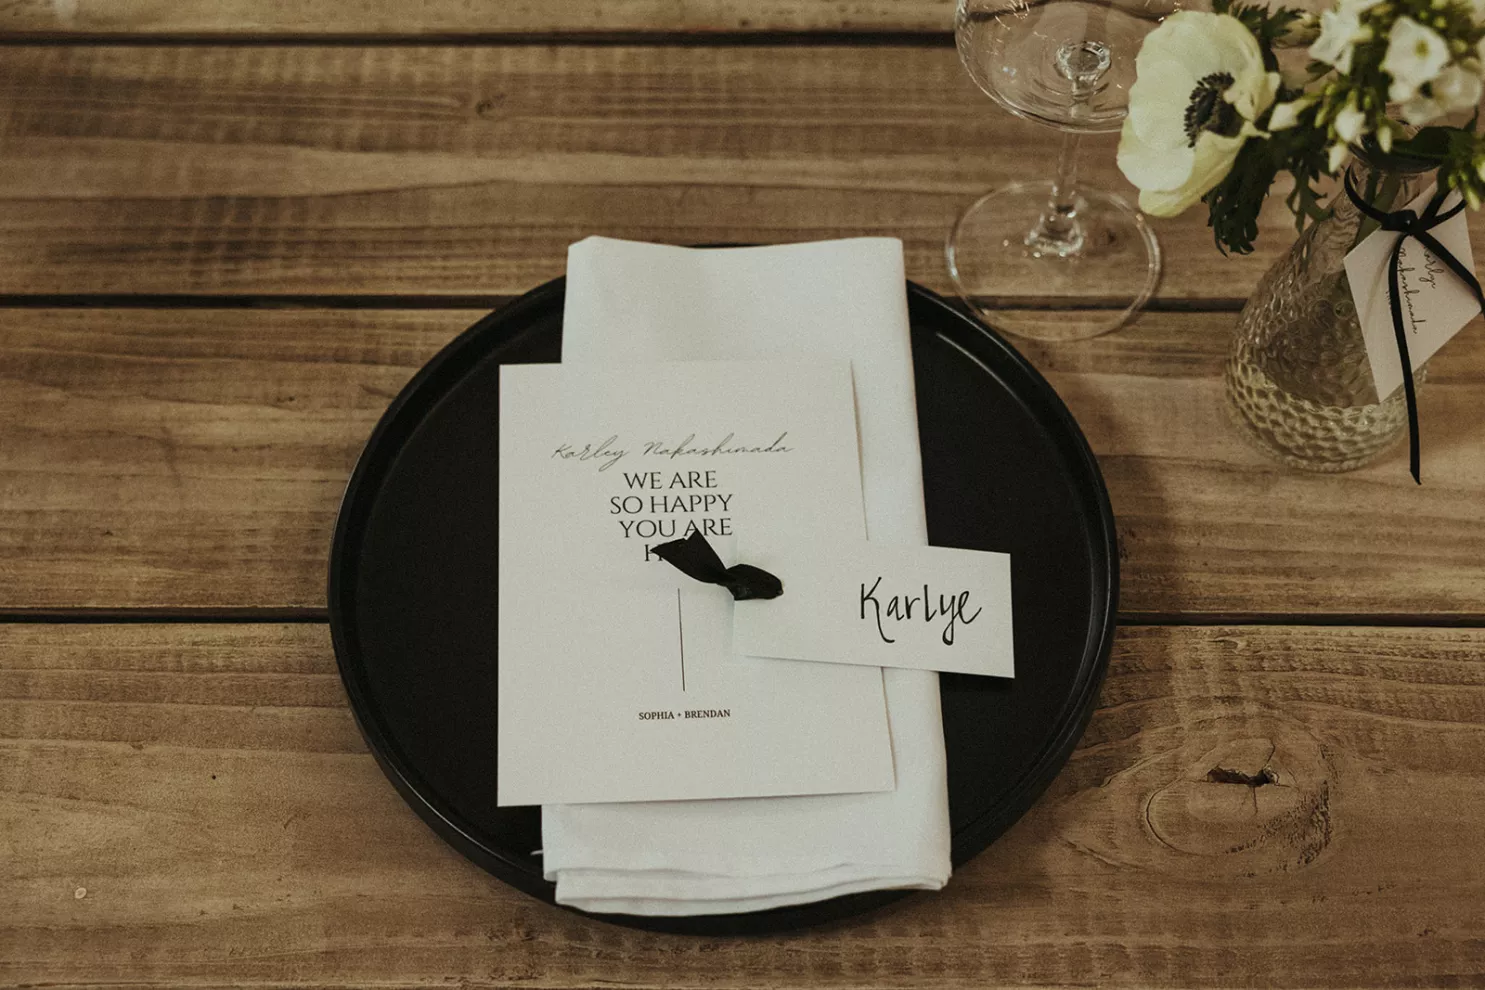 Karley Nakashimada
WE ARE
SO HAPPY
YOU ARE
SOPHIA + BRENDAN
Karlye
Nakashimada